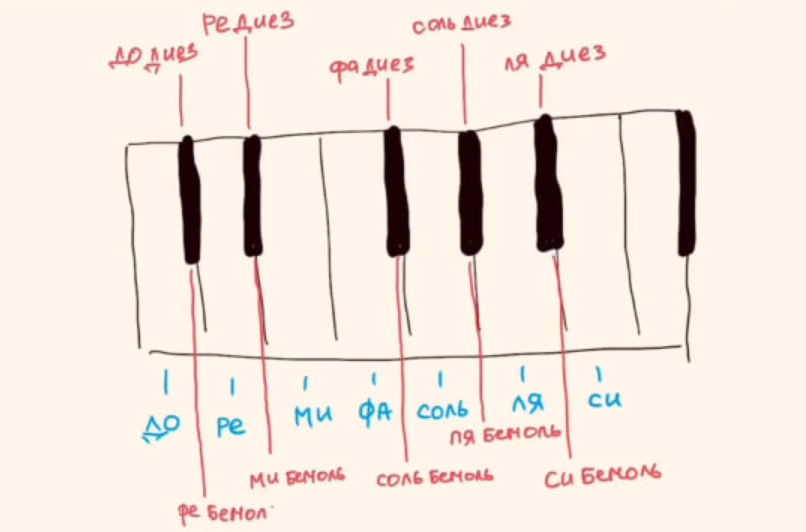 ре диез
соль диез
до диез
фа диез
ля диез
до
ре
ми
фа
соль
ля
си
ля бемоль
ми бемоль
соль бемоль
си бемоль
ре бемол